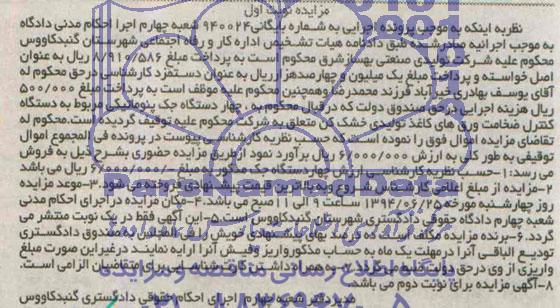 مزایده نوبت اول
نظر به اینکه به موجب پرونده اجرایی به شماره بایگانی ۹۴۰۰۲۴ شعبه چهارم اجرا احکام مدنی دادگاه
به موجب اجرائیه صادر شده طبق دادنامه هیات تشخیص اداره کار و رفاه اجتماعی شهرستان گنبدکاووس
علیه شرکت تولیدی صنعتی بهساز شرق محکوم است به پرداخت مبلغ ۸/۹۱۰/۵۸۶ ریال به عنوان
اصل خواسته و پرداخت مبلغ یک میلیون و چهارصد هزار ریال به عنوان دستمزد کارشناسی در حق محکوم له
آقای یوسف بهادری خیرآباد فرزند محمدرضا و همچنین محکوم علیه موظف است به پرداخت مبلغ ۵۰۰/۰۰۰
ریال هزینه اجرایی در حق صندوق دولت که در قبال محکوم به، چهار دستگاه جک پنوماتیکی مربوط به دستگاه
کنترل ضخامت وری های کاغذ تولیدی خشک کن متعلق به شرکت محکوم علیه توقیف گردیده است. محکوم له
تقاضای مزایده اموال فوق را نموده است که حسب نظریه کارشناسی پیوست در پرونده فی المجموع اموال
توقیفی به طور کلی به ارزش ۶۷/۰۰۰/۰۰۰ ریال برآورد نمود از طریق مزایده حضوری بشرح ذیل به فروش
می رسد: ۱-حسب نظریه کارشناسی ارزش چهار دستگاه جک مذکور به مبلغ ۶۷/۰۰۰/۰۰۰ ریال می باشد
۲-مزایده از مبلغ اعلامی کارشناس شروع و به بالاترین قیمت پیشنهادی فروخته می شود. ۳-موعد مزایده
روز چهارشنبه مورخه ۱۳۹۴/۰۶/۲۵ ساعت ۹ الی ۱۱ صبح می باشد. ۴-مکان مزایده در اجرای احکام مدنی
شعبه چهارم دادگاه حقوقی دادگستری شهرستان گنبدکاووس است. ۵-این آگهی فقط در یک نوبت منتشر می
گردد. ۶-برنده مزایده مکلف است ده درصد بهای پیشنهادی خویش را فی المجلس به صندوق دادگستری
تودیع الباقی آنرا در مهلت یک ماه به حساب مذکور واریز و فیش آنرا ارایه نمایند در غیر این صورت مبلغ
واریزی از وی در حق دولت ضبط میگردد. ۷- به همراه داشتن کارت شناسایی برای متقاضیان الزامی است.
۸-آگهی مزایده برای نوبت دوم می باشد.
مدیر دفتر شعبه چهارم اجرای احکام حقوقی دادگستری گنبدکاووس